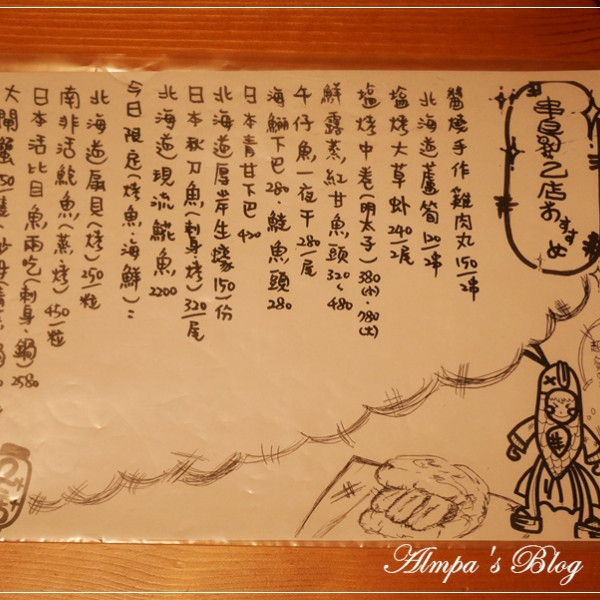 串貝彩乙店おすすめ
醬燒手作雞肉丸 150/串
北海道蘆筍 120/串
塩烤大草虾 240/2尾
塩烤中卷(明太子) 380(小)、780(大)
鮮露蒸紅甘魚頭 320~480
午仔魚一夜干 280/尾
海鱺下巴 280、鮭魚頭 280
日本青甘下巴 420
北海道厚岸生蠔 150/份
日本秋刀魚(刺身、烤) 320/尾
北海道現流魷魚 2200
今日限定(烤魚、海鮮)::
北海道扇貝(烤) 250/粒
南非活鮑魚(蒸、烤) 450/粒
日本活比目魚兩吃(刺身、鍋) 2580
大閘蟹
Almpa's Blog